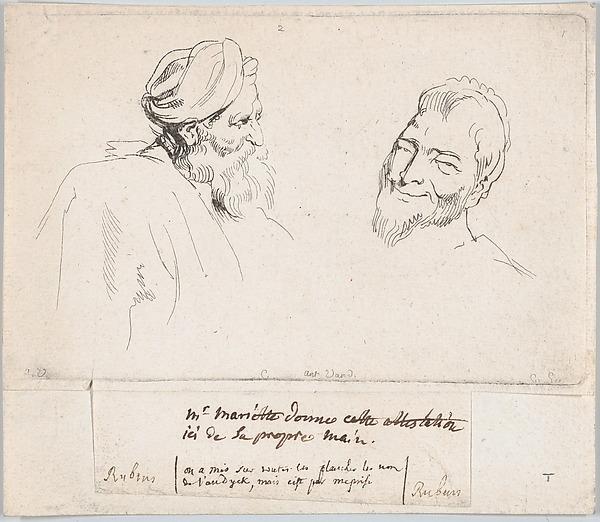 2
a.V. C. ant. Vand.
mr mariette donne cette attestation
ici de sa propre main.
on a mis sur toutes les planches le nom
de Vandyck, mais c'est par meprise
Rubens
Rubens
T